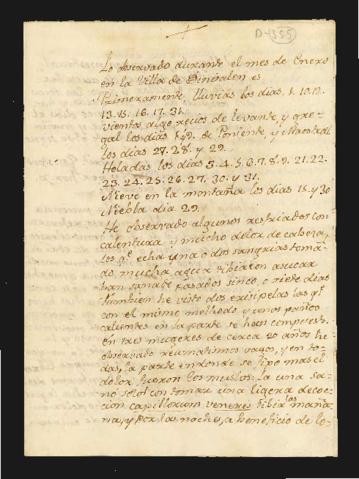 D-355
Lo observado durante el mes de Enero
en la Villa de es
Primeramente, lluvias los dias, 1. 10. 12.
13. 15. 16. 17. 31.
vientos, algo recios de levante, y
gal los dias de Poniente, y
los dias 27. 28. y 29.
Heladas los dias 3. 4. 5. 6. 7. 8. 9. 21. 22.
23. 24. 25. 26. 27. 30. y 31.
Nieve en la montaña los dias 15. y 30
Niebla dia 29.
He observado algunos resfriados con
calentura, y mucho dolor de cabeza,
los q.e echa una o dos sangrias toman
do, mucha agua tibia con asucar
han sanado pasados sinco, o siete dias
tambien he visto dos erisipelas las q.e
con el mismo methodo, y unos paños
calientes en la parte se han compuesto.
en tres mugeres de cerca 20 años he
observado reumatismos vagos, y en to-
das, la parte endonde se fijo mas el
dolor fueron los muslos. La una sa-
no solo con tomar una ligera decoc-
cion capillorum veneris tibia las maña-
nas, y por las noches, a beneficio de lo-